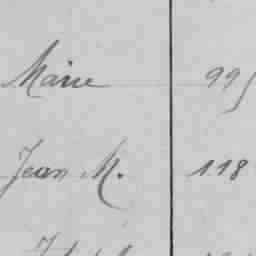 Marie 995
Jean M. 118